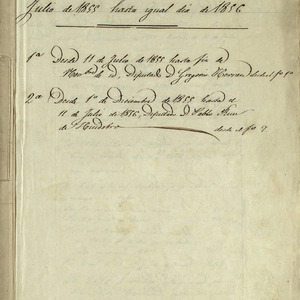 Julio de 1855 hasta igual dia de 1856
1ª Desde 11 de Julio de 1855 hasta fin de
Novbre de id, Diputado D Gregorio
2ª Desde 1º de Diciembre de 1855 hasta el
11 de Julio de 1856, Diputado D. Pablo
de
desde el fº 7